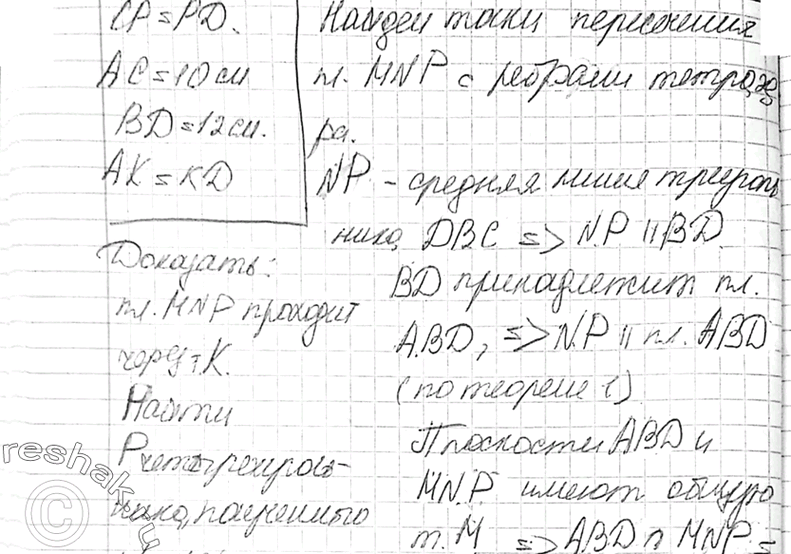 CP = PD.
AC = 10 см
BD = 12 см.
AK = KD
Доказать:
пл. MNP проходит
через т. K.
Найти
P четырехуголь-
ника, полученного
Найдем точки пересечения
пл. MNP с ребрами тетраэд
ра.
NP - средняя линия треуголь
ника DBC => NP || BD
BD принадлежит пл.
ABD, => NP || пл. ABD
(по теореме 1)
Плоскости ABD и
MNP имеют общую
т. M => ABD ∩ MNP =
reshak.ru